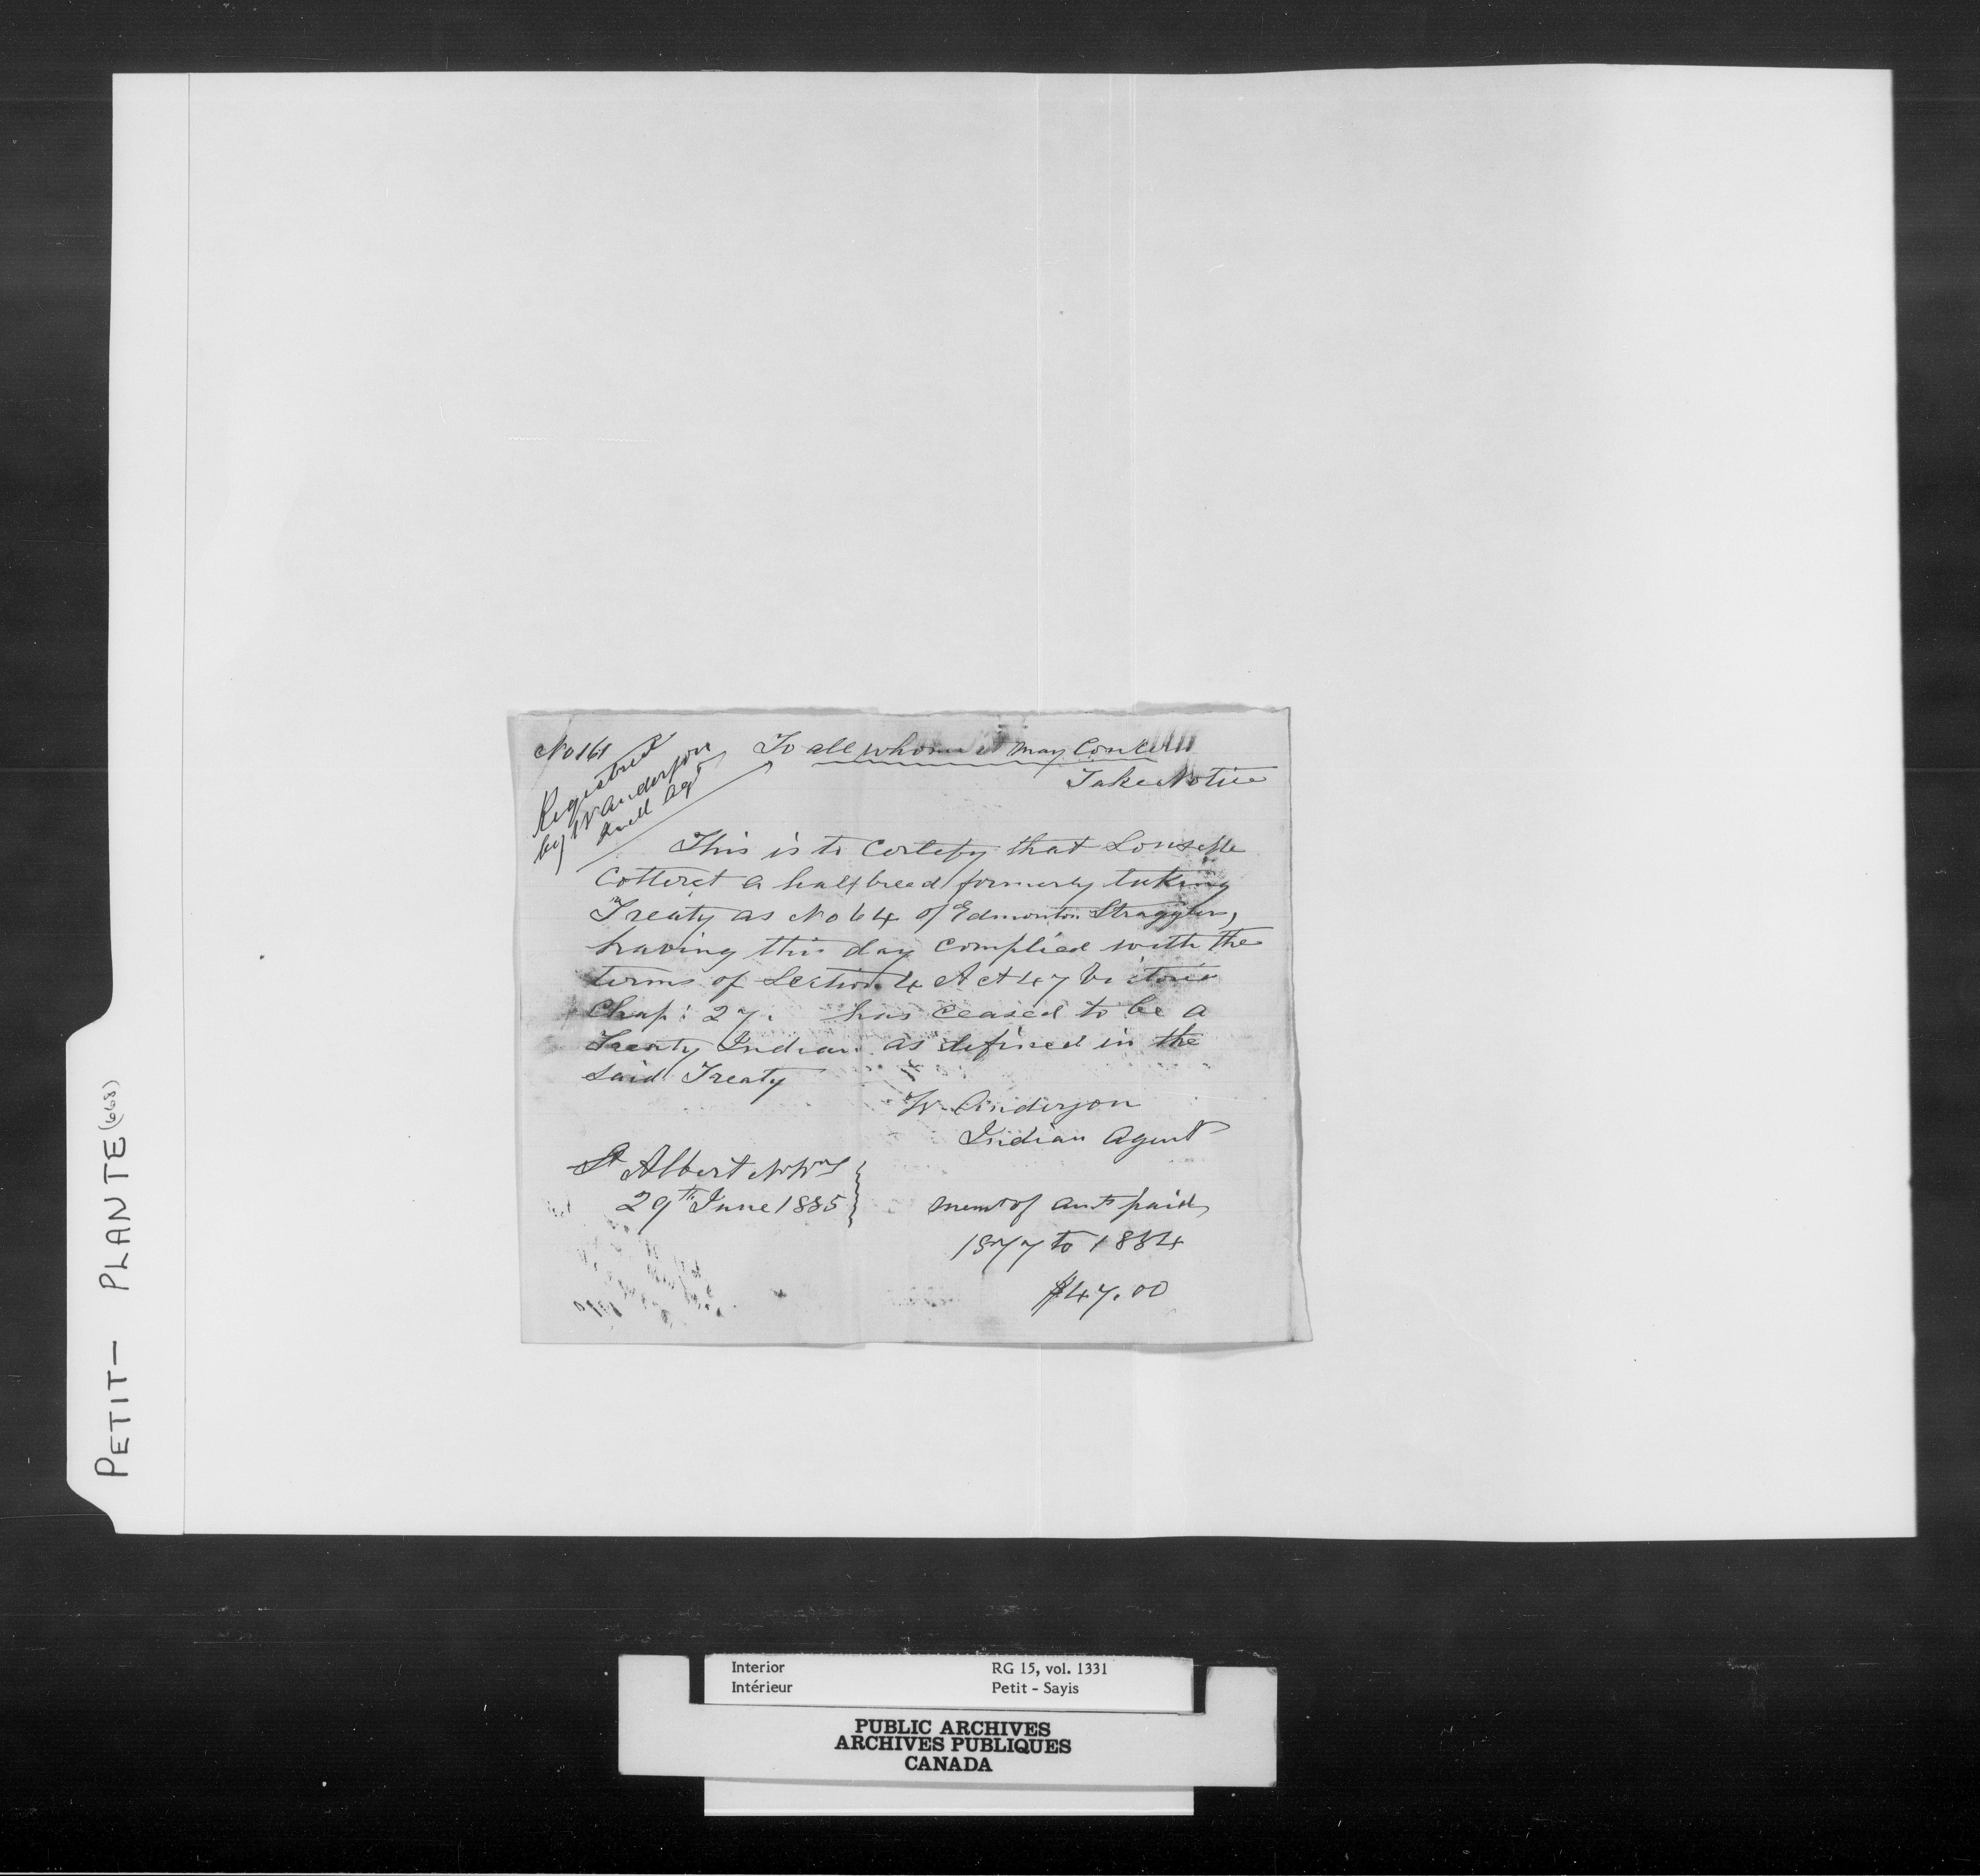 No 161
Registered
by W Anderson
Indl Agt
To all whom it may Concern
Take Notice
This is to Certify that Louselle
Cotteret a halfbreed formerly taking
Treaty as No 64 of Edmonton Stragglers,
having this day complied with the
terms of Section 4 Act 47 Victoria
Chap: 27. has ceased to be a
Treaty Indian as defined in the
said Treaty
W. Anderson
Indian Agent
St Albert NWT
29th June 1885
Memt of amt paid
1877 to 1884
$47.00
PETIT — PLANTE (668)
Interior
Intérieur
RG 15, vol. 1331
Petit - Sayis
PUBLIC ARCHIVES
ARCHIVES PUBLIQUES
CANADA